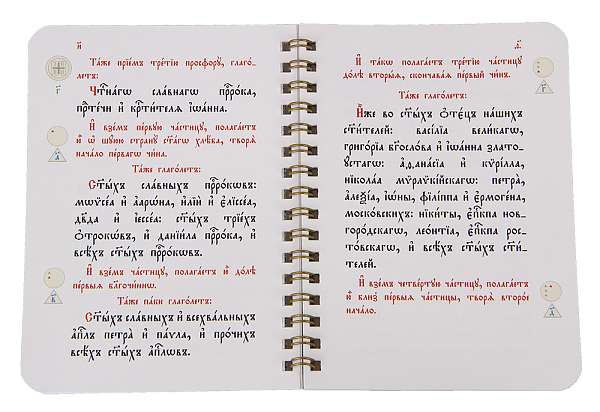 и҃
Та́же прїе́мъ тре́тїю просфору̀, глаго́-
летъ:
Чⷭ҇тна́гѡ сла́внагѡ прⷪ҇ро́ка,
прⷣте́чи и҆ крⷭ҇ти́телѧ і҆ѡа́нна.
И҆ взе́мъ пе́рвую части́цу, полага́етъ
ю҆̀ ѡ҆ шу́юю страну̀ ст҃а́гѡ хлѣ́ба, творѧ̀
нача́ло пе́рвагѡ чи́на.
Та́же глаго́летъ:
Ст҃ы́хъ сла́вныхъ прⷪ҇ро́кѡвъ:
мѡѷсе́а и҆ а҆арѡ́на, и҆лїѝ и҆ є҆лїссе́а,
дв҃да и҆ і҆ессе́а: ст҃ы́хъ трїе́хъ
ѻ҆трокѡ́въ, и҆ данїи́ла прⷪ҇ро́ка, и҆
всѣ́хъ ст҃ы́хъ прⷪ҇ро́кѡвъ.
И҆ взе́мъ части́цу, полага́етъ ю҆̀ до́лѣ
пе́рвыѧ бл҃гочи́ннѡ.
Та́же па́ки глаго́летъ:
Ст҃ы́хъ сла́вныхъ и҆ всехва́льныхъ
а҆пⷭ҇лъ петра̀ и҆ па́ѵла, и҆ про́чихъ
всѣ́хъ ст҃ы́хъ а҆пⷭ҇лѡвъ.
г҃
а҃
в҃
И҆ та́кѡ полага́етъ тре́тїю части́цу
до́лѣ вторы́ѧ, скончава́ѧ пе́рвый чи́нъ.
Та́же глаго́летъ:
И҆̀же во ст҃ы́хъ ѻ҆те́цъ на́шихъ
ст҃и́телей: васі́лїа вели́кагѡ,
григо́рїа бг҃осло́ва и҆ і҆ѡа́нна злато-
у́стагѡ: а҆ѳана́сїа и҆ кѷрі́лла,
нїко́лаа мѷрлѷкі́йскагѡ: петра̀,
а҆леѯі́а, і҆ѡ́ны, фїлі́ппа и҆ є҆рмоге́на,
моско́вскихъ: ники́ты, є҆пⷭ҇кпа нов-
горо́дскагѡ, лео́нтїа, є҆пⷭ҇кпа рос-
то́вскагѡ, и҆ всѣ́хъ ст҃ы́хъ ст҃и́-
телей.
И҆ взе́мъ четве́ртую части́цу, полага́етъ
ю҆̀ бли́з̾ пе́рвыѧ части́цы, творѧ̀ второ́е
нача́ло.
г҃